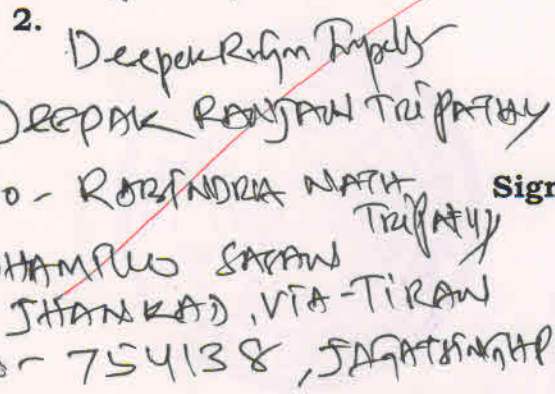 2.
Deepak Ranjan Tripathy
DEEPAK RANJAN TRIPATHY
o - RABINDRA NATH
Sign
TRIPATHY
SASAN
JHANKAD, VIA-TIRAN
- 754138, JAGATSINGHP